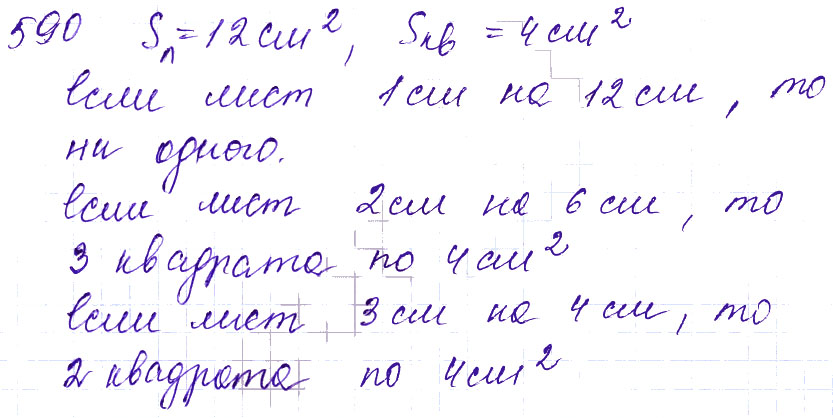 590 Sп = 12 см², Sкв = 4 см²
если лист 1 см на 12 см, то
ни одного.
если лист 2 см на 6 см, то
3 квадрата по 4 см²
если лист 3 см на 4 см, то
2 квадрата по 4 см²